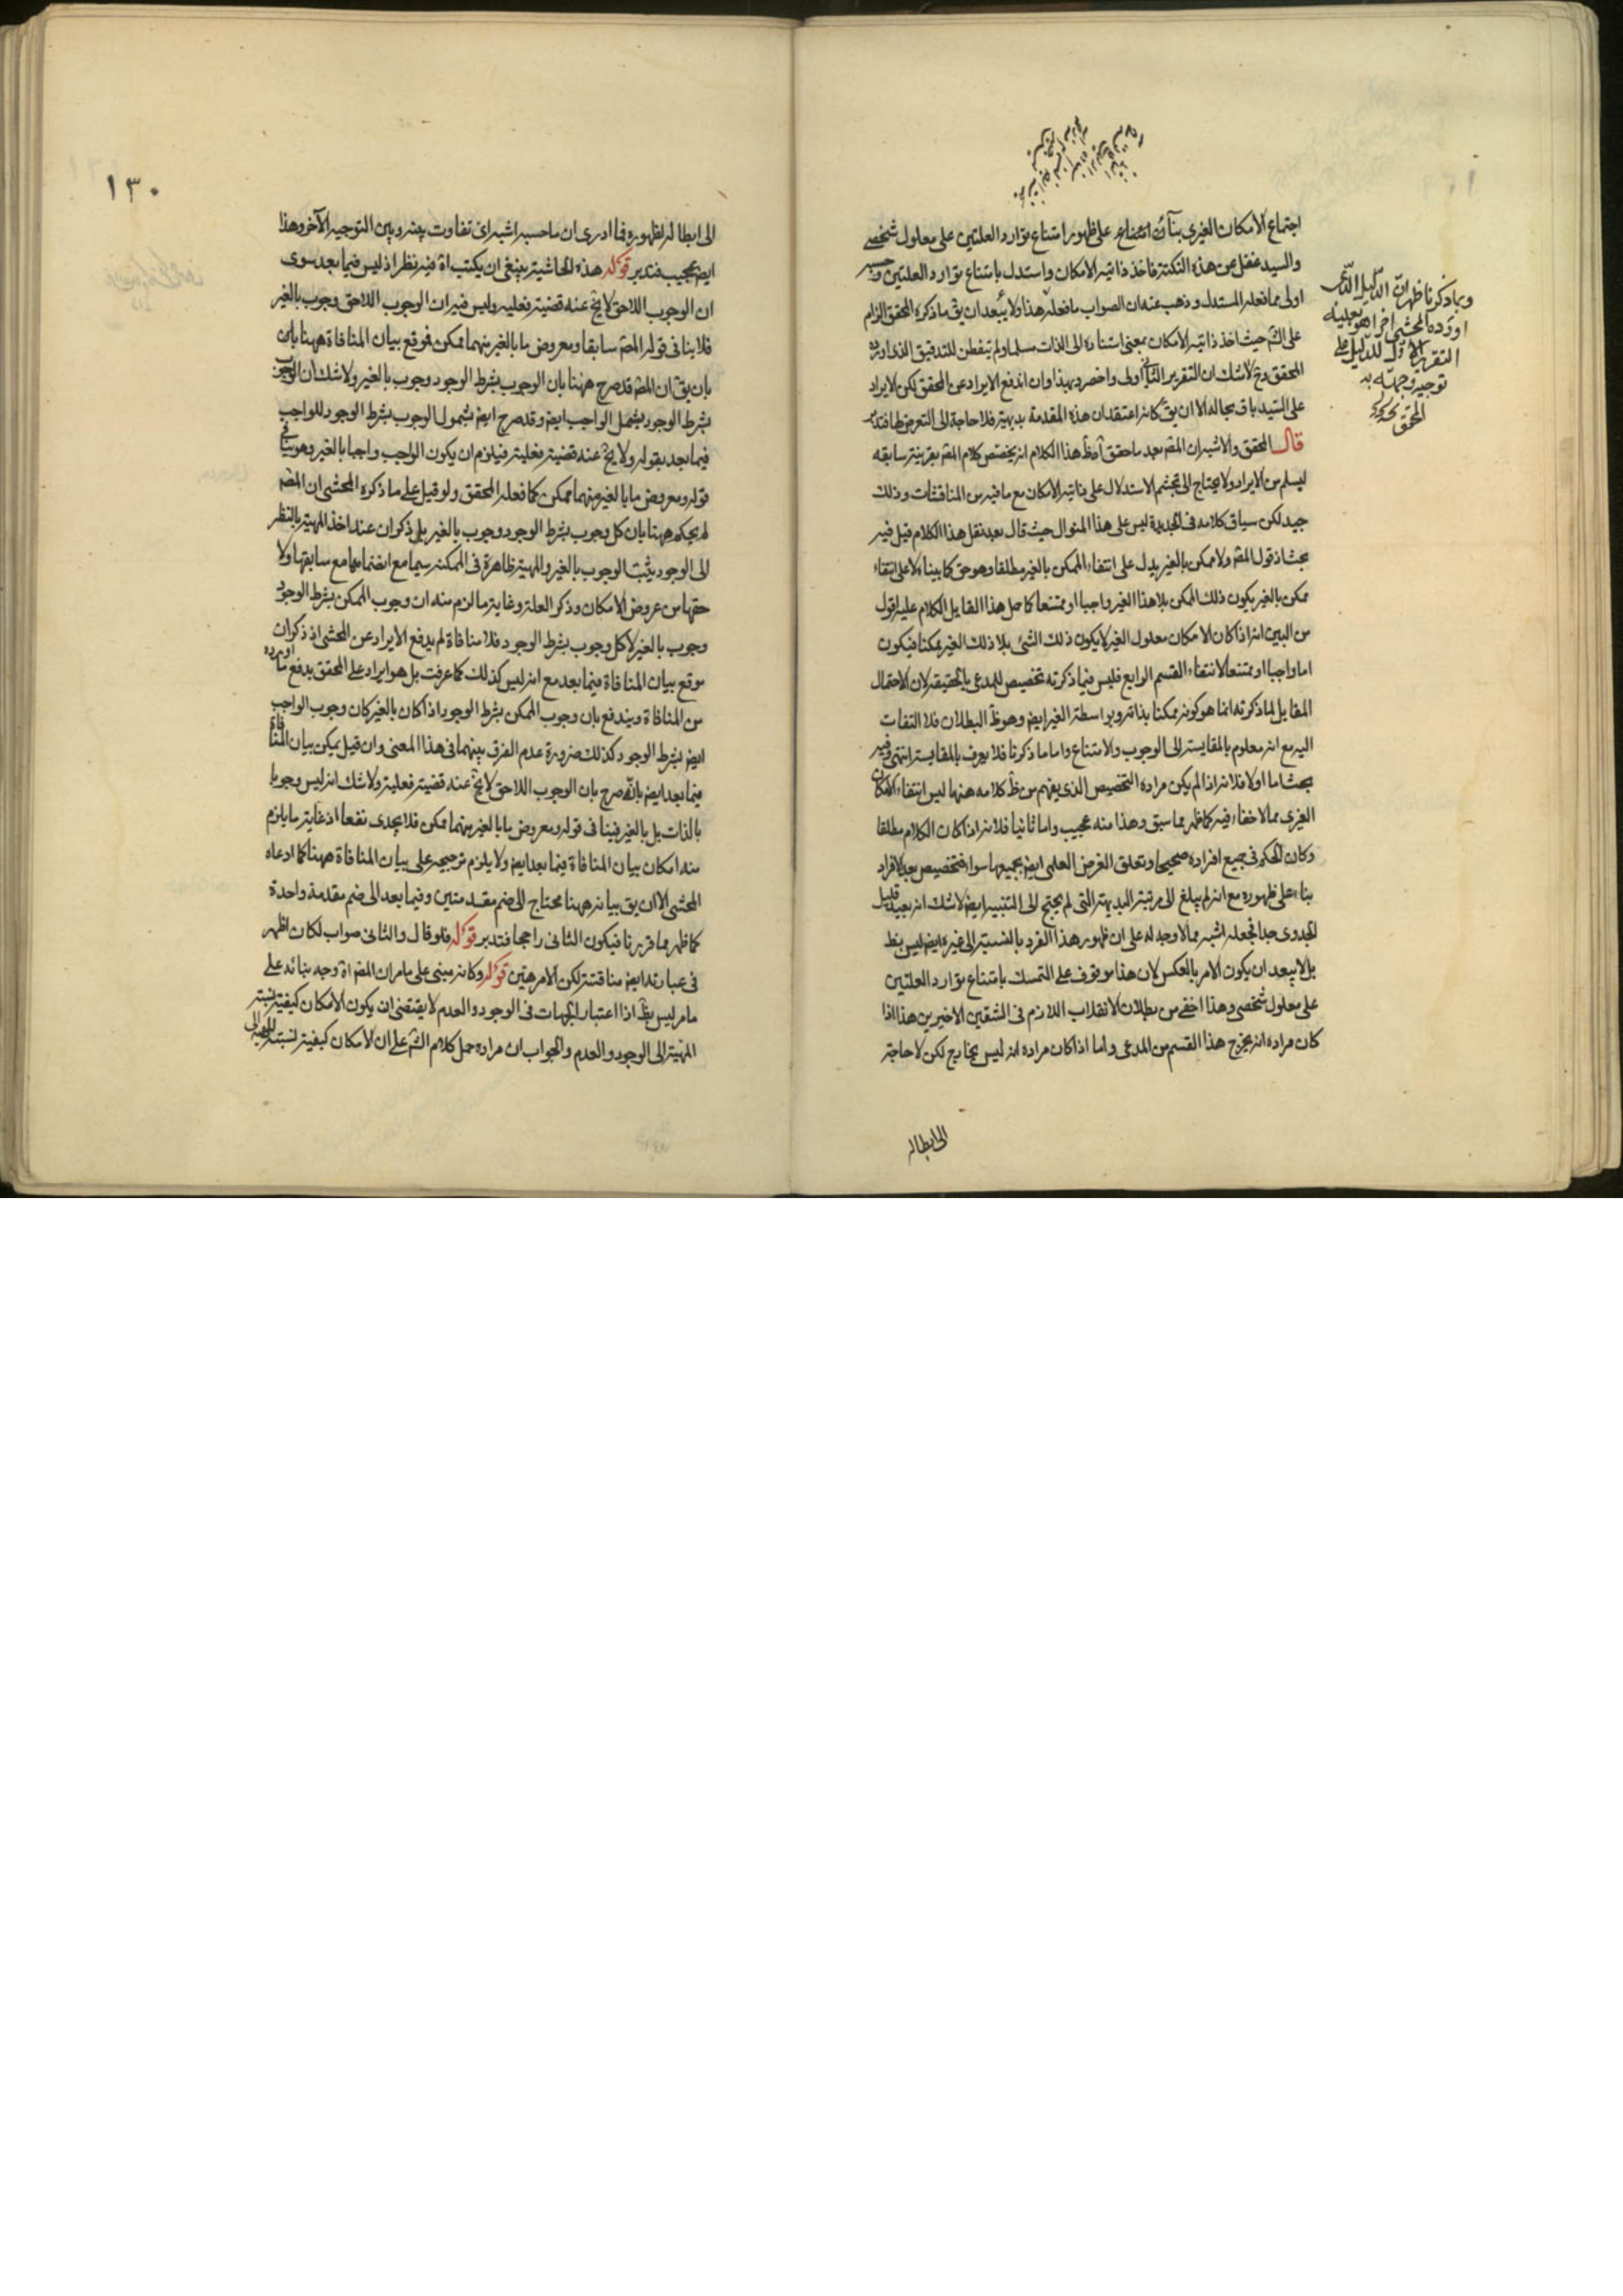 اجتماع الامكان الغيرى بناء على ظهور امتناع توارد العلتين على معلول شخصى
والسيد غفل عن هذه النكتة فاخذ ذاتية الامكان واستدل بامتناع توارد العلتين
اولى مما فعله المستدل وذهب عنه ان الصواب ما فعله هذا ولا يبعد ان يق ما ذكره المحقق الزام
على الش حيث اخذ ذاتية الامكان بمعنى استناده الى الذات مسلما ولم يتفطن للتدقيق الذى اورده
المحقق وح لا شك ان التقرير الثانى اولى واخصر وبهذا وان اندفع الايراد عن المحقق لكن الايراد
على السيد باق بحاله الا ان يق كانه اعتقد ان هذه المقدمة بديهية فلا حاجة الى التعرض لها فتدبر
قال المحقق والاشبه ان المص بعد ما حقق هذا الكلام انه يختص كلام المص بقرينة سابقه
ليسلم من الايراد ولا يحتاج الى تجشم الاستدلال على ذاتية الامكان مع ما فيه من المناقشات وذلك
جيد لكن سياق كلامه فى الجديدة ليس على هذا المنوال حيث قال بعد نقل هذا الكلام قيل فيه
بحث اذ قول المص ولا ممكن بالغير يدل على انتفاء الممكن بالغير مطلقا وهو حق كما بيناه لا على انتفاء
ممكن بالغير يكون ذلك الممكن بلا هذا الغير واجبا او ممتنعا كما حمل هذا القايل الكلام عليه اقول
من البين انه اذا كان الامكان معلول الغير لا يكون ذلك الشئ بلا ذلك الغير ممكنا فيكون
اما واجبا او ممتنعا لانتفاء القسم الرابع فليس فيما ذكرته تخصيص للمدعى بالحقيقة لان الاحتمال
المقابل لما ذكرته انما هو كونه ممكنا بذاته وبواسطة الغير ايض وهو ظ البطلان فلا التفات
اليه مع انه معلوم بالمقايسة الى الوجوب والامتناع واما ما ذكرنا فلا يعرف بالمقايسة انتهى وفيه
بحث اما اولا فلانه اذا لم يكن مراده التخصيص الذى يفهم من ظ كلامه ههنا ليس انتفاء الامكان
الغيرى مما لا خفاء فيه كما ظهر مما سبق وهذا منه عجيب واما ثانيا فلانه اذا كان الكلام مطلقا
وكان الحكم فى جميع افراده صحيحا وتعلق الغرض العلمى ايض بجميعها سواء فتخصيص بعد الافراد
بناء على ظهوره مع انه لم يبلغ الى مرتبة البديهة التى لم يحتج الى التنبيه ايض لا شك انه بعيد قليل
الجدوى جدا فجعله اشبه مما لا وجه له على ان ظهور هذا الفرد بالنسبة الى غيره ايض ليس بظ
بل لا يبعد ان يكون الامر بالعكس لان هذا موقوف على التمسك بامتناع توارد العلتين
على معلول شخصى وهذا اخفى من بطلان الانقلاب اللازم فى الشقين الاخيرين هذا اذا
كان مراده انه يخرج هذا القسم من المدعى واما اذا كان مراده انه ليس بخارج لكن لا حاجة
الى ابطاله
وبما ذكرنا ظهر ان الدليل الذى
اورده المحشى اخرا هو بعينه
التقرير الاول للدليل على
توجيه وجهه به
المحقق
١٣٠
الى ابطاله لظهوره فما ادرى ان ما حسبه اشبه اى تفاوت بينه وبين التوجيه الآخر وهذا
ايض عجيب فتدبر قوله هذه الحاشية ينبغى ان يكتب اة فيه نظر اذ ليس فيما بعد سوى
ان الوجوب اللاحق لا يخ عنه قضية فعلية وليس فيه ان الوجوب اللاحق وجوب بالغير
فلا ينافى قوله المص سابقا ومعروض ما بالغير منهما ممكن فوقع بيان المنافاة ههنا
بان يق ان المص قد صرح ههنا بان الوجوب بشرط الوجود وجوب بالغير ولا شك ان الوجوب
بشرط الوجود يشمل الواجب ايض وقد صرح ايض بشمول الوجوب بشرط الوجود للواجب
فيما بعد بقوله ولا يخ عنه قضية فعلية فيلزم ان يكون الواجب واجبا بالغير وهو ينافى
قوله ومعروض ما بالغير منهما ممكن كما فعله المحقق ولو قيل على ما ذكره المحشى ان المص
لم يحكم ههنا بان كل وجوب بشرط الوجود وجوب بالغير بل ذكر ان عند اخذ المهية بالنظر
الى الوجود يثبت الوجوب بالغير والمهية ظاهرة فى الممكنة سيما مع انضمامها مع سابقها ولا
حقها من عروض الامكان وذكر العلة وغاية ما لزم منه ان وجوب الممكن بشرط الوجود
وجوب بالغير لا كل وجوب بشرط الوجود فلا منافاة لم يدفع الايراد عن المحشى اذ ذكر ان
موقع بيان المنافاة فيما بعد مع انه ليس كذلك كما عرفت بل هو ايراد على المحقق يدفع ما اورده
من المنافاة ويندفع بان وجوب الممكن بشرط الوجود اذا كان بالغير كان وجوب الواجب
ايض بشرط الوجود كذلك ضرورة عدم الفرق بينهما فى هذا المعنى وان قيل يمكن بيان المنافاة
فيما بعد ايض بانه صرح بان الوجوب اللاحق لا يخ عنه قضية فعلية ولا شك انه ليس وجوبا
بالذات بل بالغير فينافى قوله ومعروض ما بالغير منهما ممكن فلا يجدى نفعا اذ غاية ما يلزم
منه امكان بيان المنافاة فيما بعد ايض ولا يلزم ترجيحه على بيان المنافاة ههنا كما ادعاه
المحشى الا ان يق بيانه ههنا محتاج الى ضم مقدمتين وفيما بعد الى ضم مقدمة واحدة
كما ظهر مما قررنا فيكون الثانى راجحا فتدبر قوله فلو قال والثانى صواب لكان اظهر
فى عبارته ايض مناقشة لكن الامر هين قوله وكانه مبنى على ما مر ان المص اة وجه بنائه على
ما مر ليس بظ اذا اعتبار الجهات فى الوجود والعدم لا يقتضى ان يكون الامكان كيفية نسبة
المهية الى الوجود والعدم والجواب ان مراده حمل كلام الش على ان الامكان كيفية لنسبة